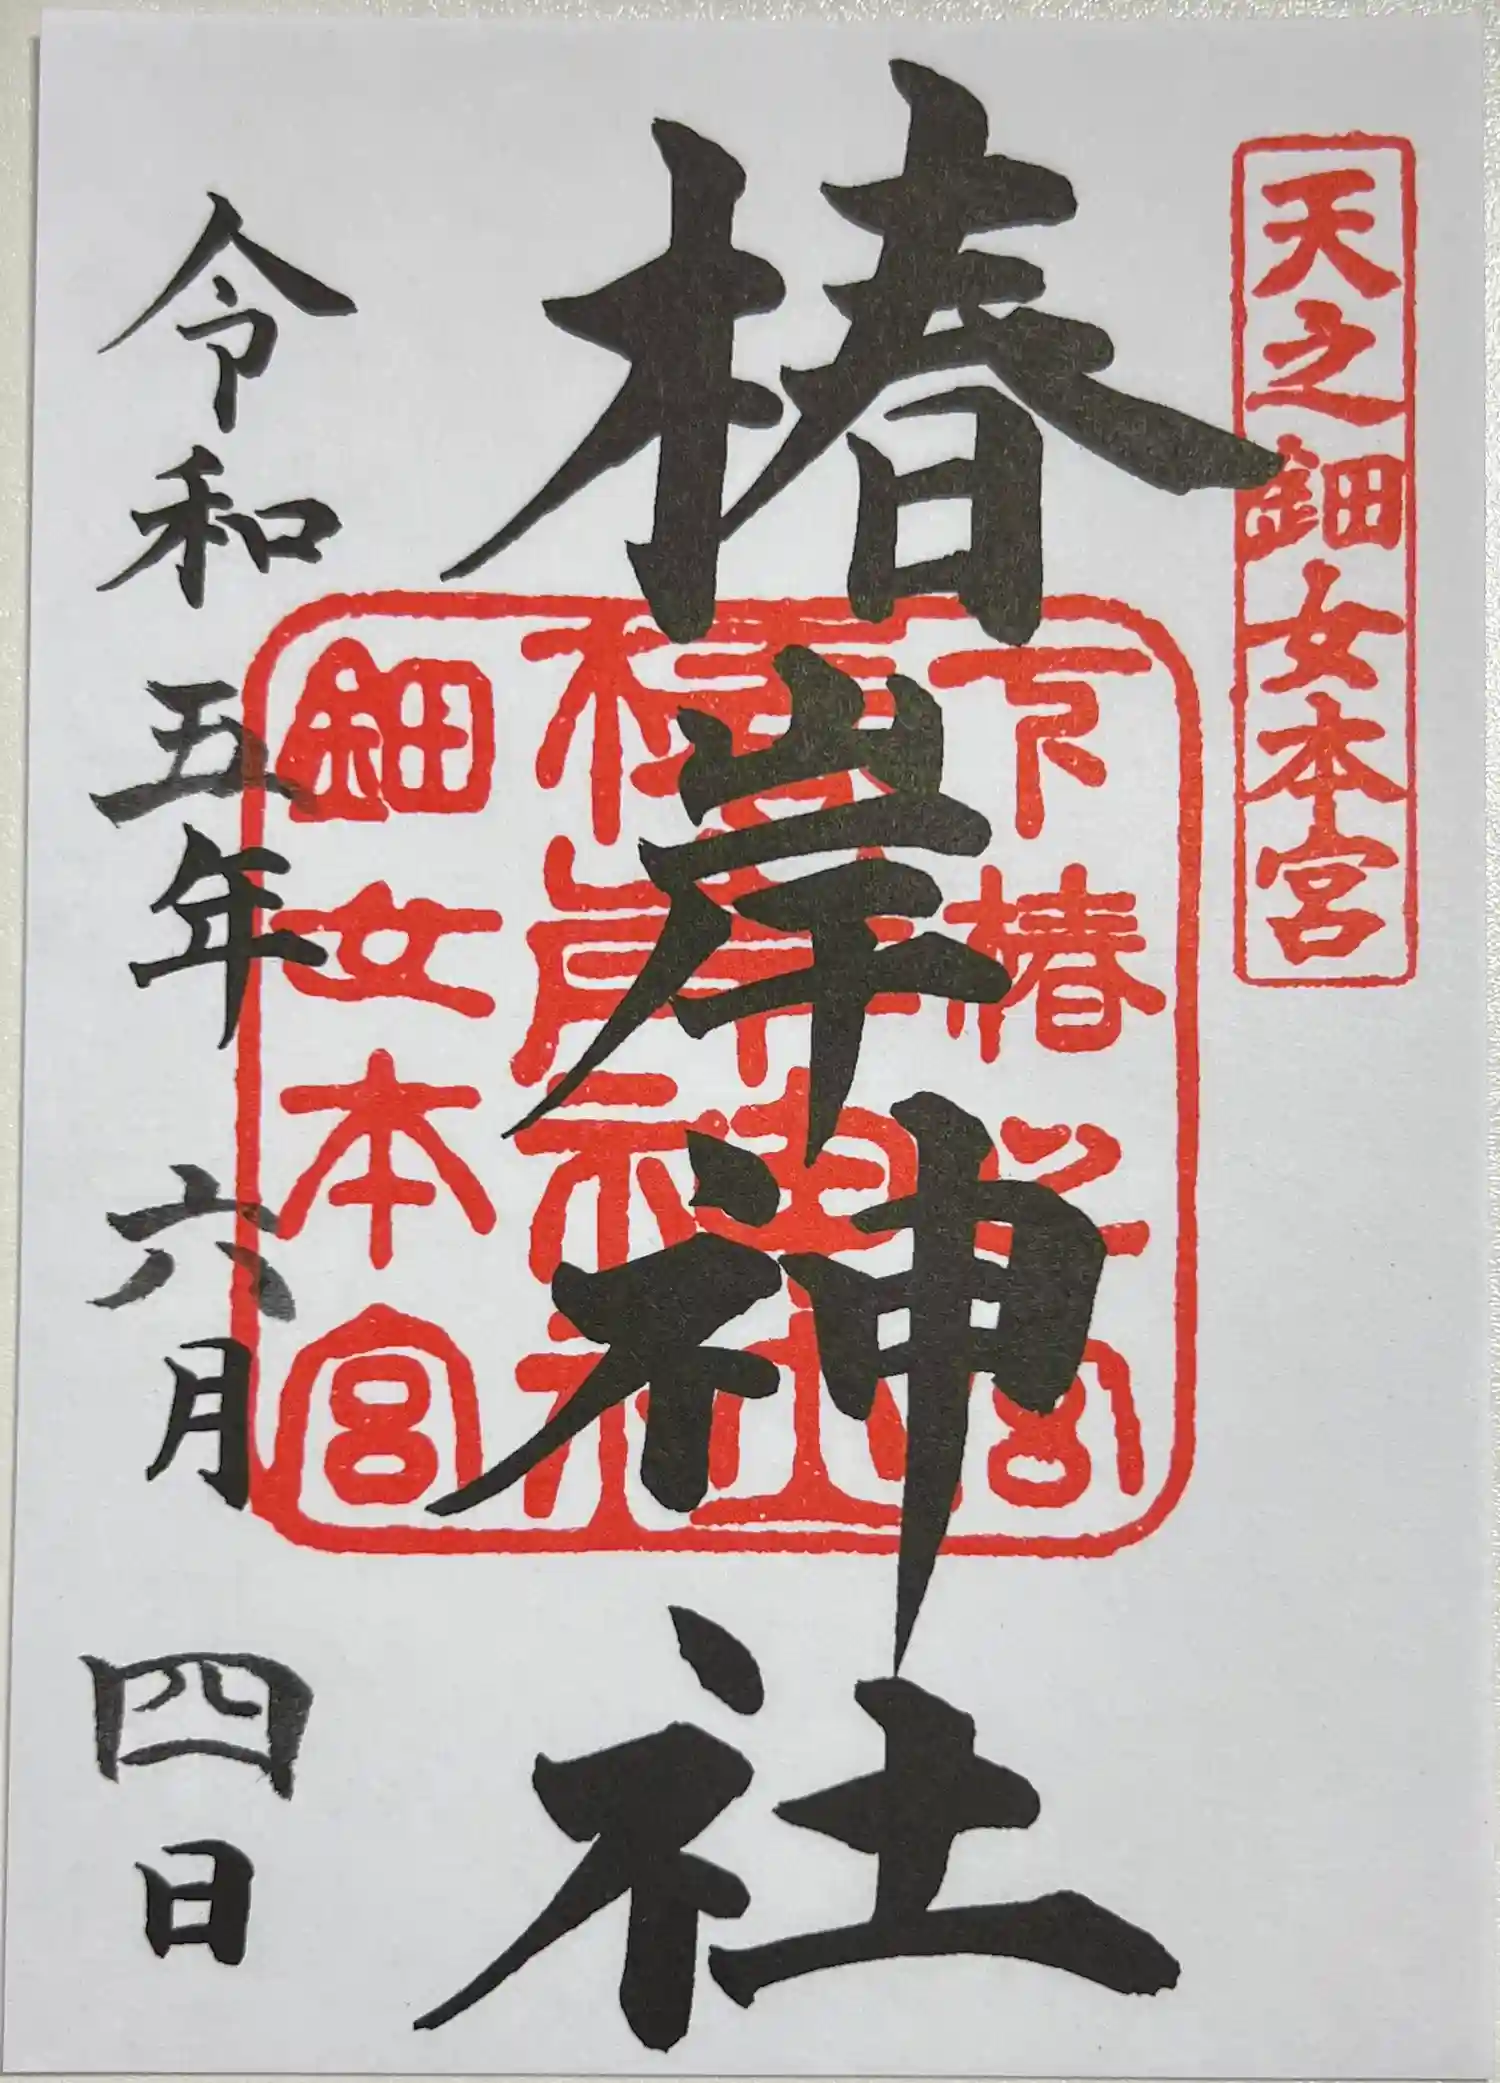 天之鈿女本宮
椿岸神社
下椿宮
椿岸神社
鈿女本宮
令和五年六月四日